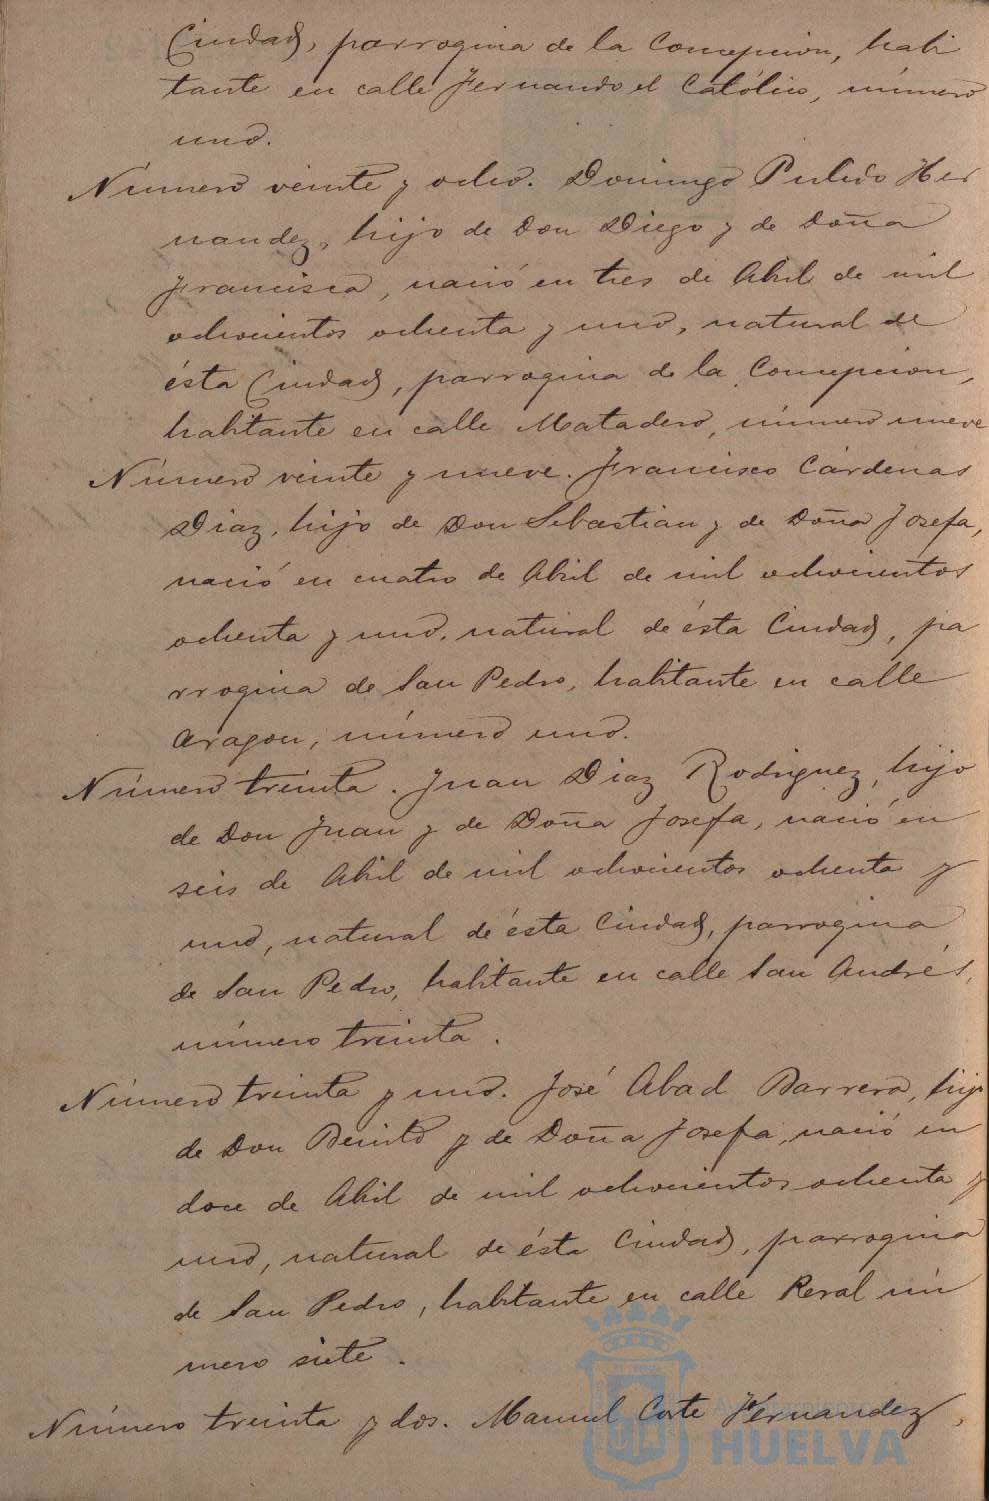 Ciudad, parroquia de la Concepcion, habi
tante en calle Fernando el Católico, número
uno.
Número veinte y ocho. Domingo Pulido Her
nandez, hijo de Don Diego y de Doña
Francisca, nació en tres de Abril de mil
ochocientos ochenta y uno, natural de
ésta Ciudad, parroquia de la Concepcion,
habitante en calle Matadero, número nueve
Número veinte y nueve. Francisco Cárdenas
Diaz, hijo de Don Sebastian y de Doña Josefa,
nació en cuatro de Abril de mil ochocientos
ochenta y uno, natural de ésta Ciudad, pa
rroquia de San Pedro, habitante en calle
Aragon, número uno.
Número treinta. Juan Diaz Rodriguez, hijo
de Don Juan y de Doña Josefa, nació en
seis de Abril de mil ochocientos ochenta y
uno, natural de ésta Ciudad, parroquia
de San Pedro, habitante en calle San Andrés,
número treinta.
Número treinta y uno. José Abad Barrera, hijo
de Don Benito y de Doña Josefa, nació en
doce de Abril de mil ochocientos ochenta y
uno, natural de ésta Ciudad, parroquia
de San Pedro, habitante en calle Peral nú
mero siete.
Número treinta y dos. Manuel Corte Hernandez,
Ayuntamiento de
HUELVA